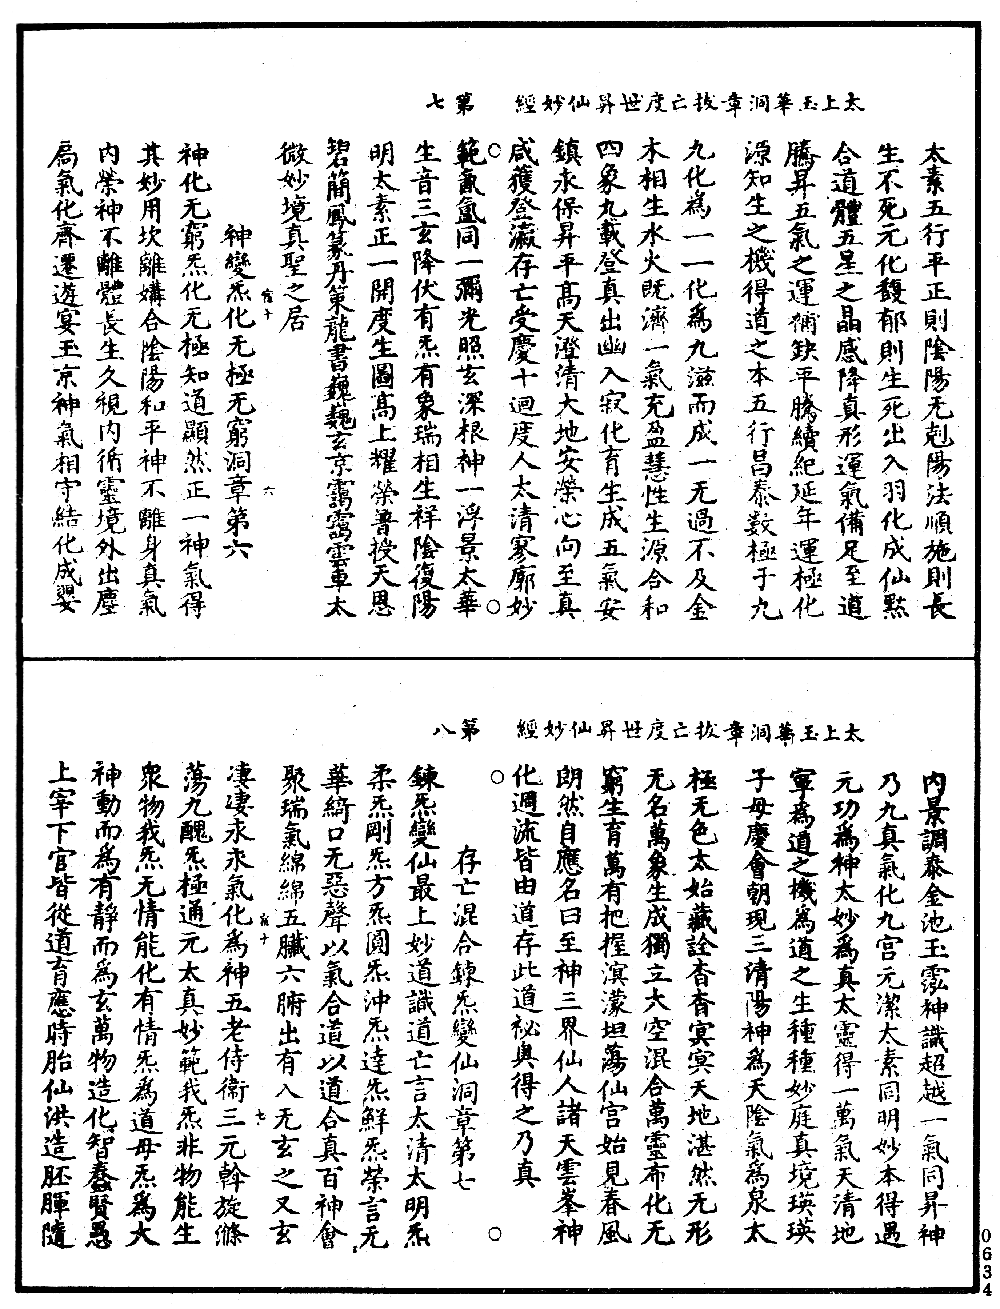 太上玉華洞章拔亡度世昇仙妙經　第七
太素五行平正則陰陽无剋陽法順施則長
生不死元化馥郁則生死出入羽化成仙黙
合道體五星之晶感降真形運氣備足至道
騰昇五氣之運彌缺平騰續紀延年運極化
源知生之機得道之本五行昌泰数極于九
九化為一一化為九滋而成一无過不及金
木相生水火既濟一氣充盈慧性生源合和
四象九載登真出幽入寂化育生成五氣安
鎮永保昇平髙天澄清大地安榮心向至真
咸獲登瀛存亡受慶十迴度人太清寥廓妙
範氤氳同一彌光照玄深根神一浮景太華
生音三玄降伏有炁有象瑞相生祥陰復陽
明太素正一開度生圖髙上耀榮普授天恩
碧簡鳳篆丹策龍書巍巍玄京靄靄雲車太
微妙境真聖之居
神變炁化无極无窮洞章第六
神化无窮炁化无極知道顯然正一神氣得
其妙用坎離媾合陰陽和平神不離身真氣
內榮神不離體長生久視內循靈境外出塵
扃氣化齊遷遊宴玉京神氣相守結化成嬰
太上玉華洞章拔亡度世昇仙妙經　第八
內景調泰金池玉液神識超越一氣同昇神
乃九真氣化九宮元潔太素同明妙本得遇
元功為神太妙為真太靈得一萬氣天清地
寧為道之機為道之生種種妙庭真境瑛瑛
子母慶會朝現三清陽神為天陰氣為泉太
極无色太始藏詮杳杳㝠㝠天地湛然无形
无名萬象生成獨立大空混合萬靈布化无
窮生育萬有把握溟濛坦蕩仙宮始見春風
朗然自應名曰至神三界仙人諸天雲峯神
化週流皆由道存此道祕奥得之乃真
存亡混合錬炁變仙洞章第七
錬炁變仙最上妙道識道亡言太清太明炁
柔炁剛炁方炁圓炁沖炁達炁鮮炁榮言无
華綺口无惡聲以氣合道以道合真百神會
聚瑞氣綿綿五臟六腑出有入无玄之又玄
淒淒永永氣化為神五老侍衞三元斡旋滌
蕩九醜炁極通元太真妙範我炁非物能生
衆物我炁无情能化有情炁為道母炁為大
神動而為有靜而為玄萬物造化智蠢賢愚
上宰下官皆從道育應時胎仙洪造胚腪隨
0634